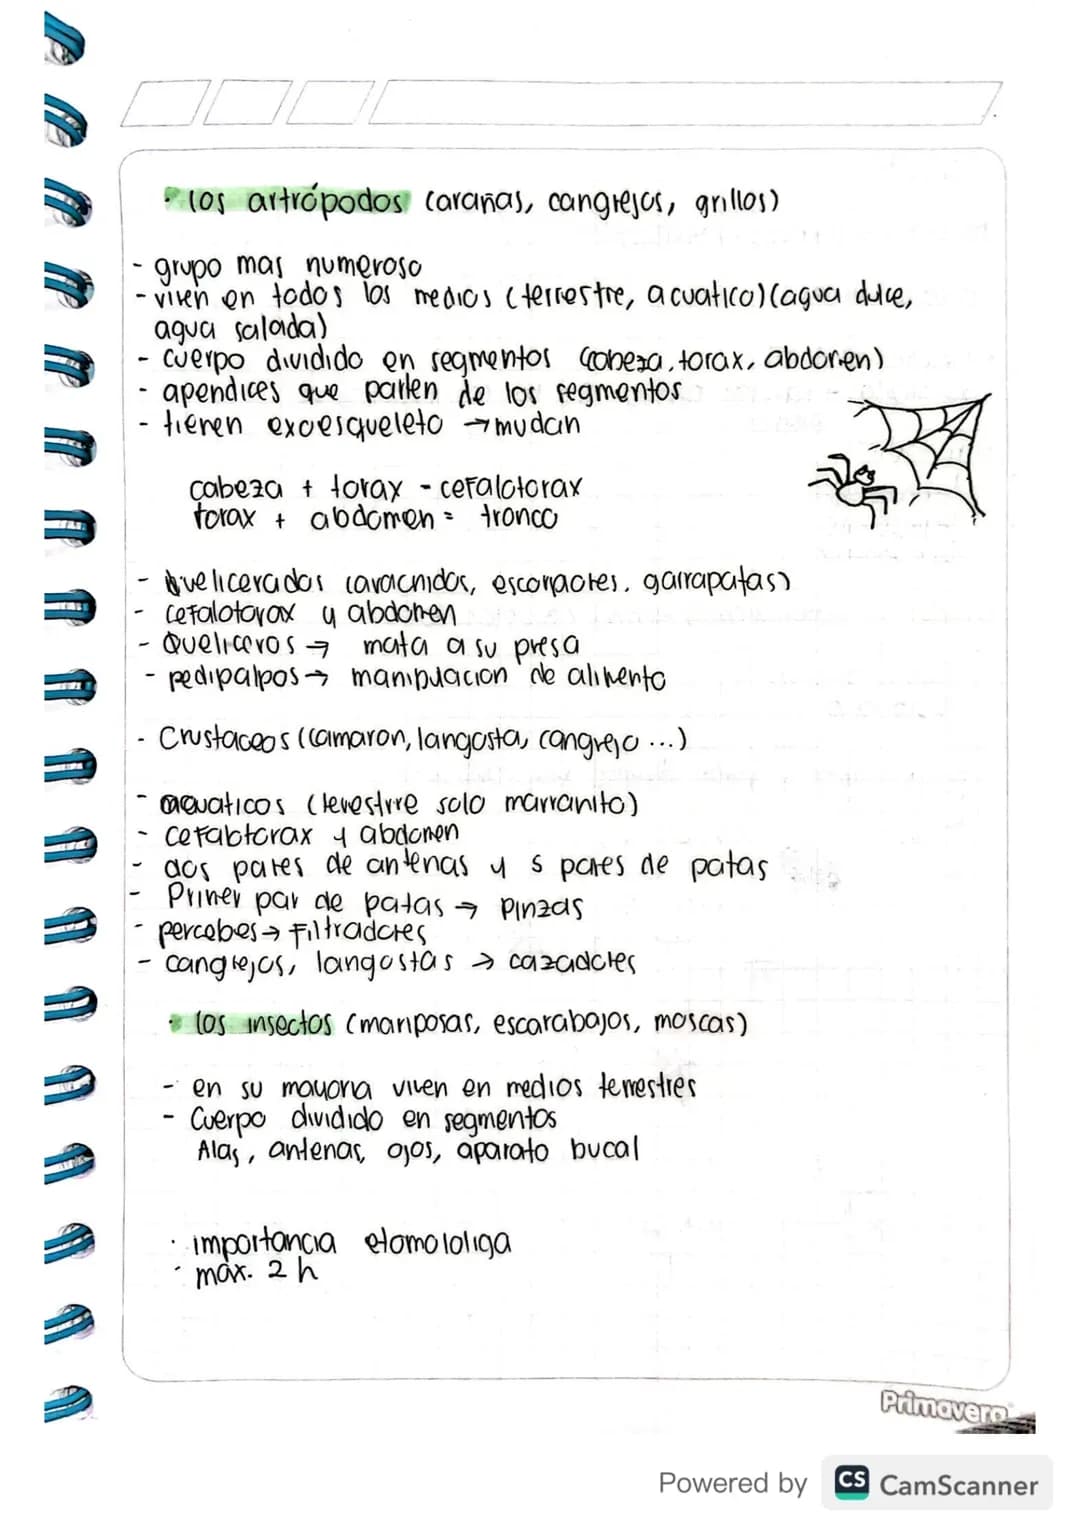 · los artrópodos (arañas, cangrejos, grillos)
- grupo mas numeroso
- viven en todos los medios (terrestre, acuatico) (agua dulce,
agua salada)
- cuerpo dividido en segmentos (cabeza, torax, abdomen)
- apendices que parten de los segmentos
- tienen exoesqueleto → mudan
cabeza + torax - cefalotorax
torax + abdomen = tronco
- quelicerados (aracnidos, escorpiones, garrapatas)
- cefalotorax y abdomen
- Queliceros → mata a su presa
- pedipalpos → manipulacion de alimento
- Crustaceos (camaron, langosta, cangrejo ...)
- acuaticos (terestrre solo marranito)
- cefalotorax y abdomen
- dos pares de antenas y 5 pares de patas
- Primer par de patas → pinzas
- percebes → Filtradores
- cangrejos, langostas → cazadores
· los insectos (mariposas, escarabajos, moscas)
- en su mayoria viven en medios terrestres
- Cuerpo dividido en segmentos
Alas, antenas, ojos, aparato bucal
· importancia etomololiga
· máx. 2 h
Primavera
Powered by CS CamScanner